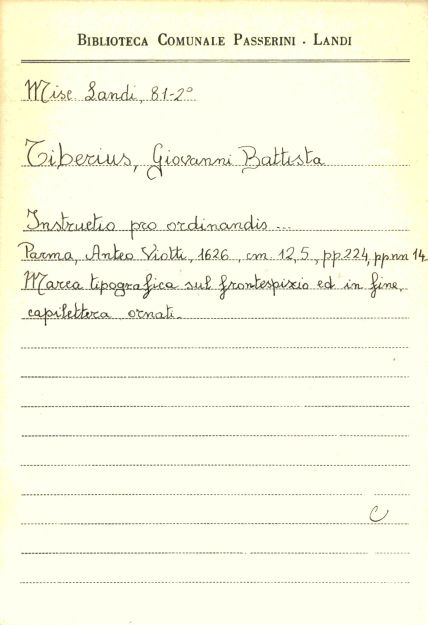 BIBLIOTECA COMUNALE PASSERINI - LANDI
Misc Landi, 81-2°
Tiberius, Giovanni Battista
Instructio pro ordinandis ...
Parma, Anteo Viotti, 1626, cm. 12,5, pp. 224, pp nn 14
Marca tipografica sul frontespizio ed in fine,
capilettera ornati.
C